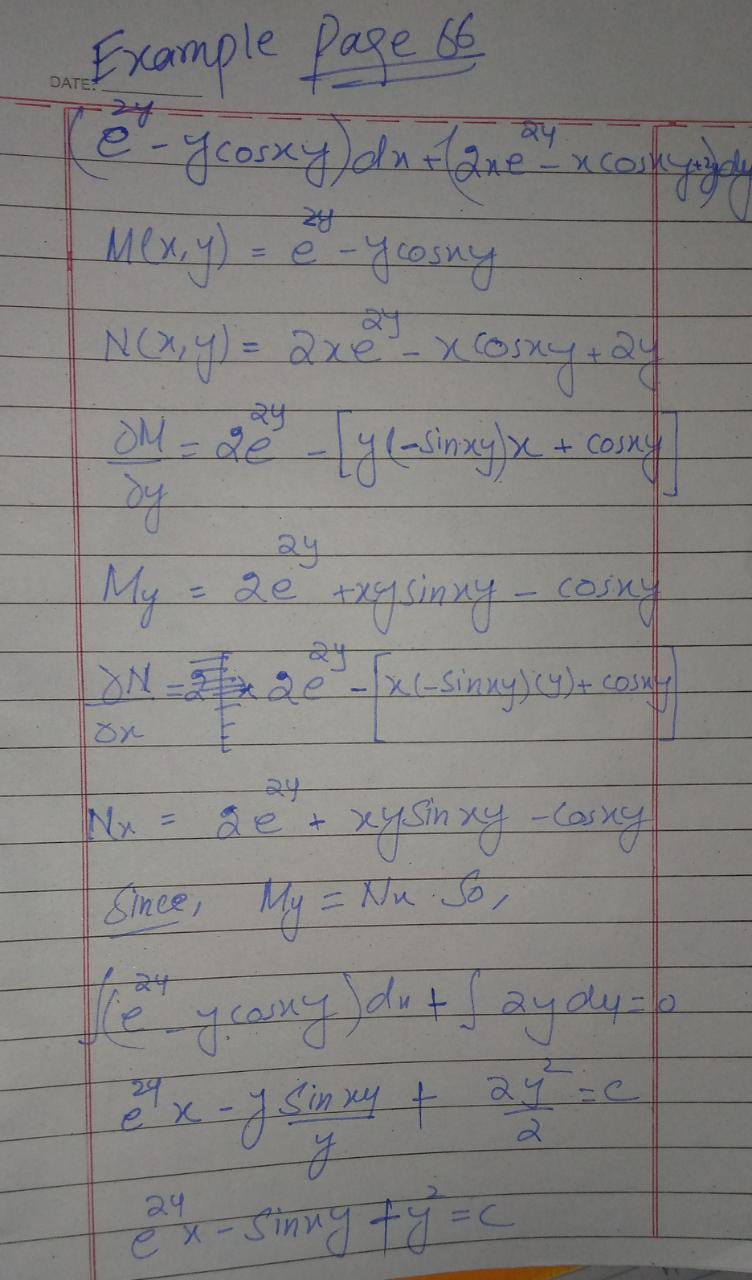 Example Page 66
DATE:
(e^2y - ycosxy)dx + (2xe^2y - xcosxy+2y)dy
M(x,y) = e^2y - ycosxy
N(x,y) = 2xe^2y - xcosxy + 2y
∂M/∂y = 2e^2y - [y(-sinxy)x + cosxy]
My = 2e^2y + xysinxy - cosxy
∂N/∂x = 2e^2y - [x(-sinxy)(y) + cosxy]
Nx = 2e^2y + xysinxy - cosxy
Since, My = Nx So,
∫(e^2y - ycosxy)dx + ∫2ydy = 0
e^2y x - y sinxy/y + 2y^2/2 = c
e^2y x - sinxy + y^2 = c